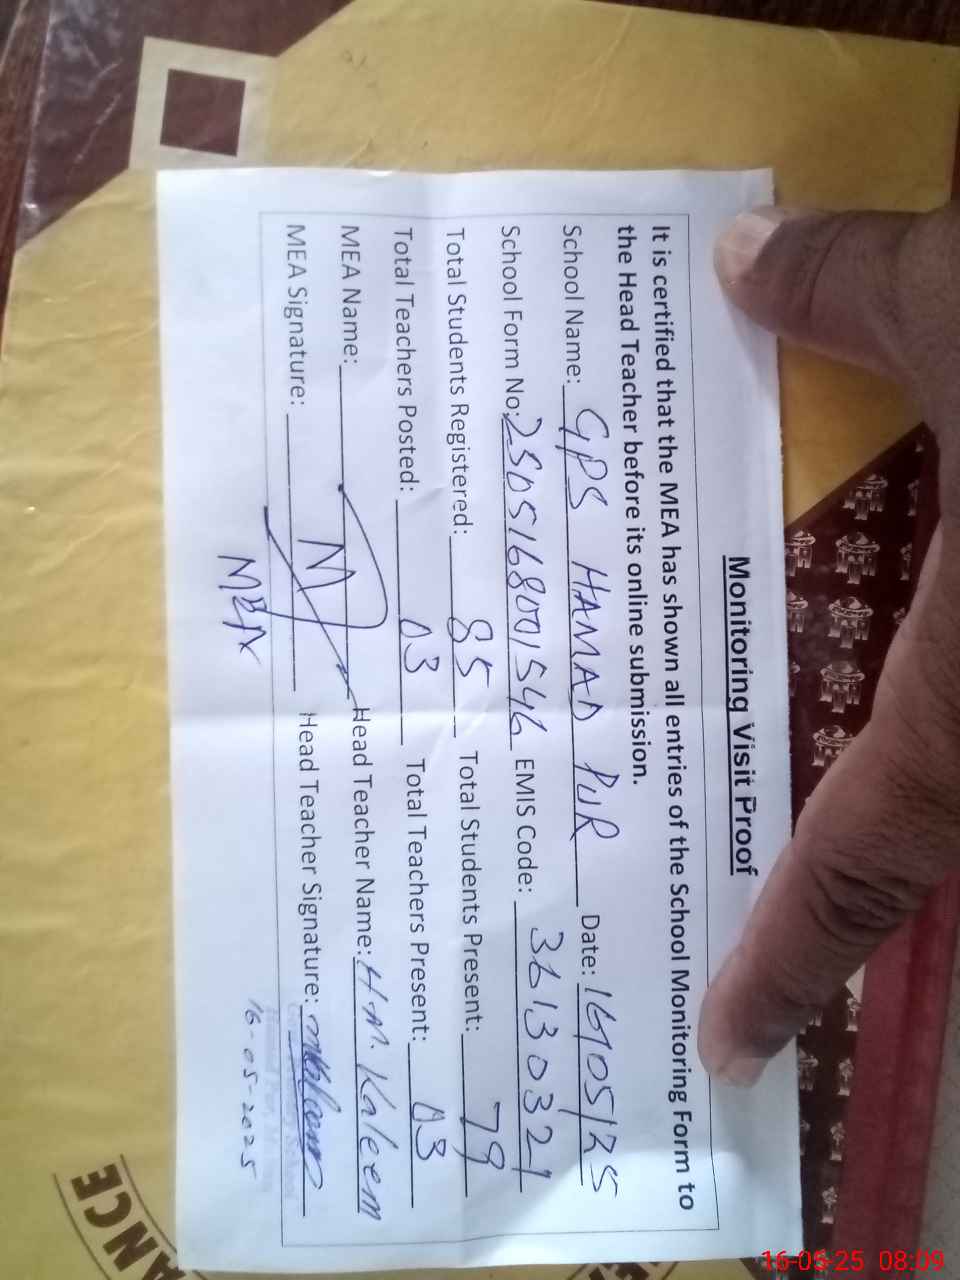 Monitoring Visit Proof
It is certified that the MEA has shown all entries of the School Monitoring Form to
the Head Teacher before its online submission.
School Name: GPS HAMAD PUR Date: 16/05/25
School Form No: 2505168001546 EMIS Code: 36130321
Total Students Registered: 85 Total Students Present: 79
Total Teachers Posted: 03 Total Teachers Present: 03
MEA Name: Head Teacher Name: H.M. Kaleem
MEA Signature: Head Teacher Signature:
MEA
16-05-2025
ANCE
16-05-25 08:09